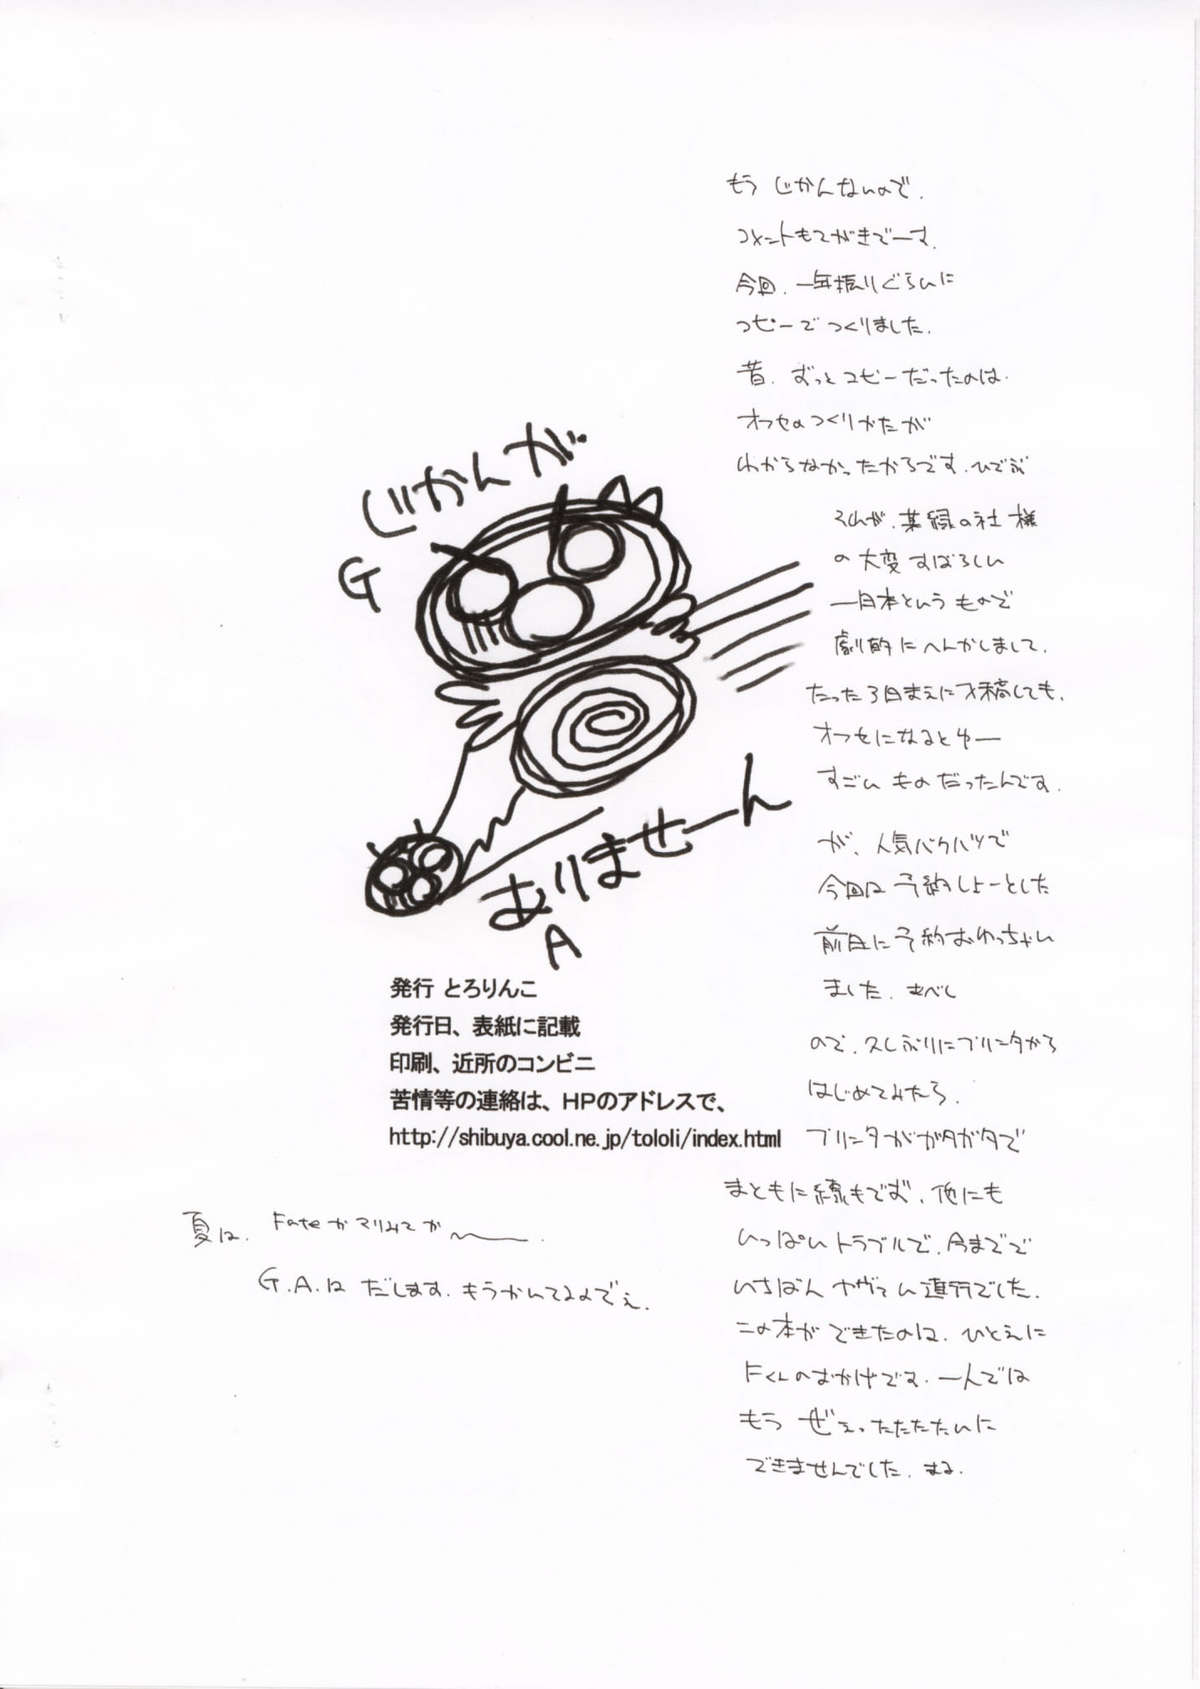 もう じかんないので.
コメントもてがきでーす.
今回. 一年振りぐらいに
コピーでつくりました.
昔. ずっとコピーだったのは.
オフセのつくりかたが
わからなかったからです. ひでぶ
それが. 葉緑の社様
の大変すばらしい
一日本という もので
劇的にへんかしまして.
たった3日まえに入稿しても.
オフセになるとゆー
すごい ものだったんです.
が、人気バクハツで
今回は予約しよーとした
前日に予約おわっちゃい
ました. あべし
ので. 久しぶりにプリンタから
はじめてみたら.
プリンタがガタガタで
まともに線もでず. 他にも
いっぱいトラブルで. 今までで
いちばんヤヴァい進行でした.
この本ができたのは. ひとえに
Fくんのおかげです. 一人では
もう ぜぇったたたたいに
できませんでした. まる.
じかんが
G
ありませーん
A
発行 とろりんこ
発行日、表紙に記載
印刷、近所のコンビニ
苦情等の連絡は、HPのアドレスで、
http://shibuya.cool.ne.jp/tololi/index.html
夏は. Fateかマリみてか〜.
G.A.は だします. もうかいてるのでぇ.